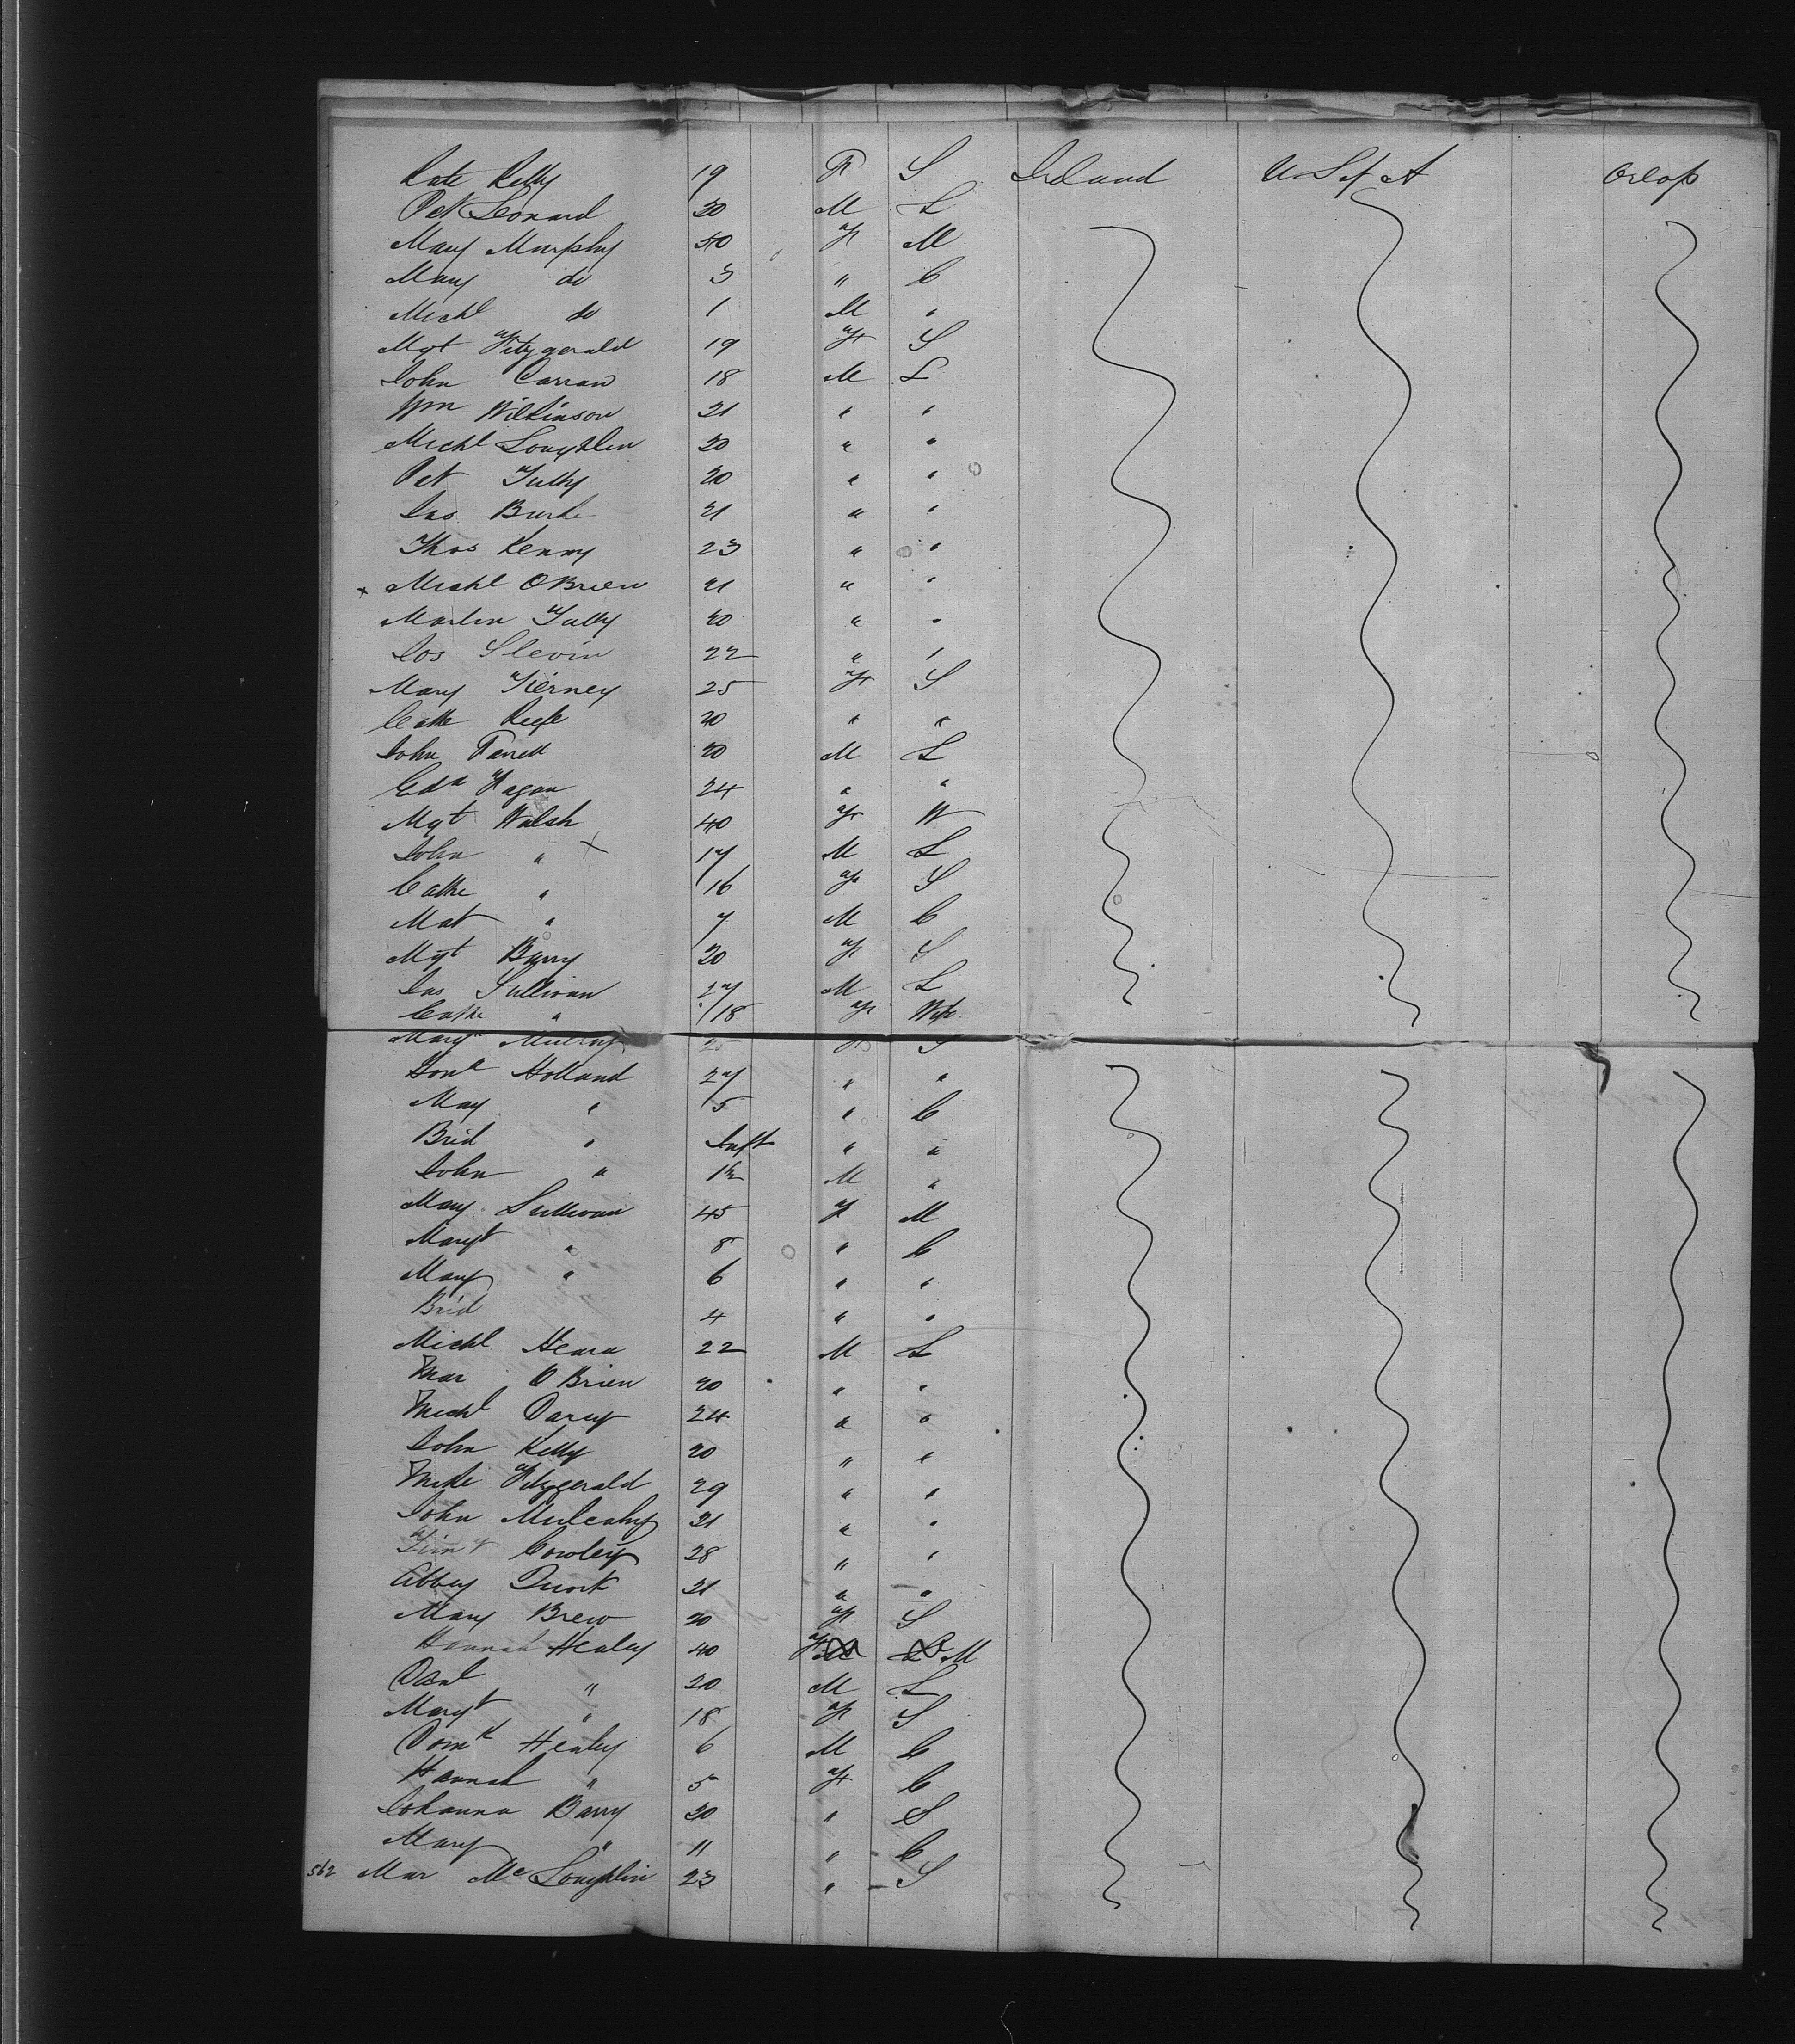 Kate Kelly 19 F S Ireland U S of A Orlop
Pat Leonard 30 M L
Mary Murphy 40 F M
Mary do 3 " C
Michl do 1 M "
Mgt Fitzgerald 19 F S
John Curran 18 M L
Wm Wilkinson 21 " "
Michl Loughlin 20 " "
Pat Tully 20 " "
Jas Burke 21 " "
Thos Kenny 23 " "
x Michl OBrien 21 " "
Martin Tully 20 " "
Jos Slevin 22 " "
Mary Tierney 25 F S
Cathe Keefe 20 " "
John Farrell 20 M L
Edd Fagan 24 " "
Mgt Walsh 40 F W
John " x 17 M L
Cathe " 16 F S
Mat " 7 M C
Mgt Barry 20 F S
Jas Sullivan 27 M L
Cathe " 18 F Wife
Mary 25 F S
Hona Holland 27 " "
May " 5 " C
Brid " Inft " "
John " M "
Mary Sullivan 45 F M
Margt " 8 " C
Mary " 6 " "
Brid 4 " "
Michl Heara 22 M L
Mar O Brien 20 " "
Michl Darcy 24 " "
John Kelly 20 " "
Mike Fitzgerald 29 " "
John Mulcahy 21 " "
Timy Cowley 28 " "
Abbey Quork 21 " "
Mary Brew 20 F S
Hannah Healey 40 F M
Danl " 20 M L
Margt " 18 F S
Domk Healey 6 M C
Hannah " 5 F C
Johanna Barry 30 " S
Mary " 11 " C
562 Mar McLoughlin 23 " S